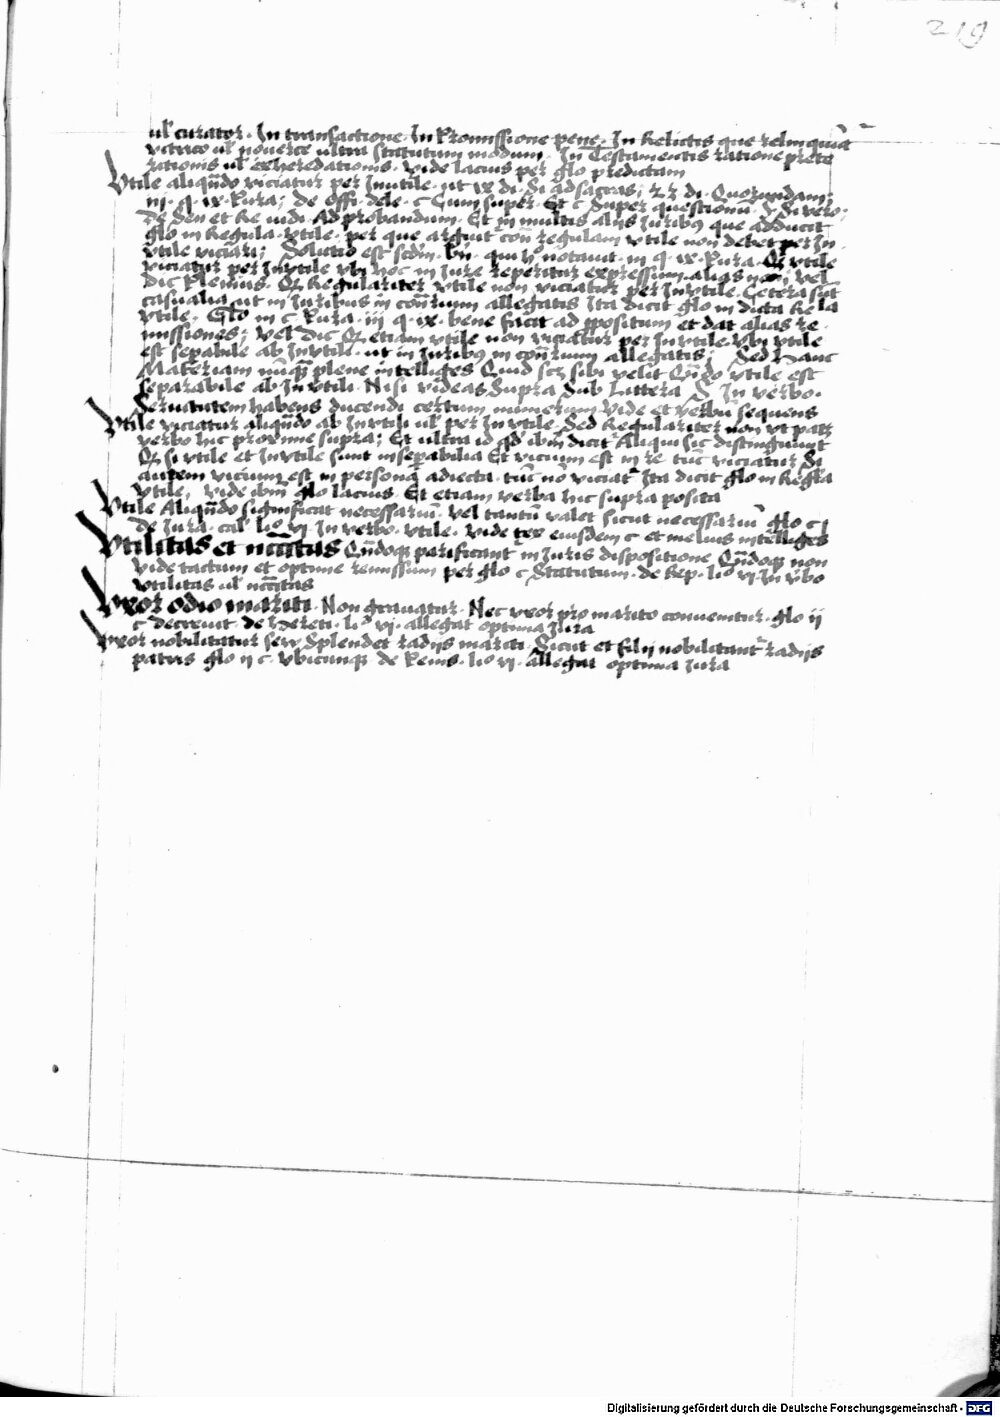 219
ul' curator · In transactione · In Promissione pene · In Relictis que relinquūt
vitrico ul' noverce ultra statutum modum · In Testamentis ratione prete
rationis ul' exheredationis · vide lacius per glo predictam
Utile aliqn̄do viciatur per Inutile · ut ix di · Si ad sacras ; Quorundam ;
iij · q · ix · Pura ; de offi · dele · c Cum super · Et c Super questionū · § Si vero ;
de Sen et Re iudi · Ad probandum · Et in multis alijs Iuribus que adducit
glo in Regula · Utile · per que arguit con̄ regulam utile non debet per In
utile viciari ; Solutio est scdm · qui notavit · iij q · ix · Pura · Qz utile
viciatur per Inutile ubi hoc in Iure reperitur expressum alias non vel
dic Plenius · Qz Regulariter Utile non viciatur per Inutile · Cetera sūt
casualia ut in Iuribus in con̄rium allegatis Ita dicit glo in dicta Re la
Utile · Glo in c Pura · iij q · ix · bene facit ad ppositum et dat alias re
missiones ; Vel dic Qz etiam utile non viciatur per Inutile · Ubi utile
est sepabile ab Inutile · ut in Iuribus in con̄rium allegatis ; Sed Hanc
Materiam nūq plene intelliges Quid scz sibi velit Qn̄do Utile est
separabile ab Inutili · Nisi videas Supra Sub Littera S In verbo ·
Servitutem habens ducendi certum numerum Vide et verbū sequens
Utile viciatur aliqn̄do ab Inutili ul' per Inutile · Sed Regulariter non ut patz
verbo hic proxime supra ; Et ultra id qd ibm dicit Aliqui sic distingunt
Qz si utile et Inutile sunt inseparabilia Et vicium est in re tūc viciatur Si
autem vicium est in persona adiecta · tūc nō viciat Ita dicit glo in Regla
Utile, vide ibm glo lacius · Et etiam verba hic supra posita
Utile Aliqn̄do significat necessariū · Vel tantū valet sicut necessariū glo c j
de Iura · cal' lio vj · In verbo · Utile · Vide tex eiusdem c et melius intelliges
Utilitas et nc̄citas Qn̄doq parificant in Iuris dispositione Qn̄doq non
vide tactum et optime remissum per glo c Statutum · de Rep · lio vj · In vbo
Utilitas ul' nc̄citas
Uxor odio mariti · Non gravatur · Nec uxor pro marito convenitur · glo ij
c decrevit · de Hereti · lio vj · allegat optima Iura
Uxor nobilitatur sew Splendet radijs mariti · Sicut et filij nobilitant radijs
patris glo ij c · Ubicunq · de Penis · lio vj · allegat optima Iura
Digitalisierung gefördert durch die Deutsche Forschungsgemeinschaft - DFG